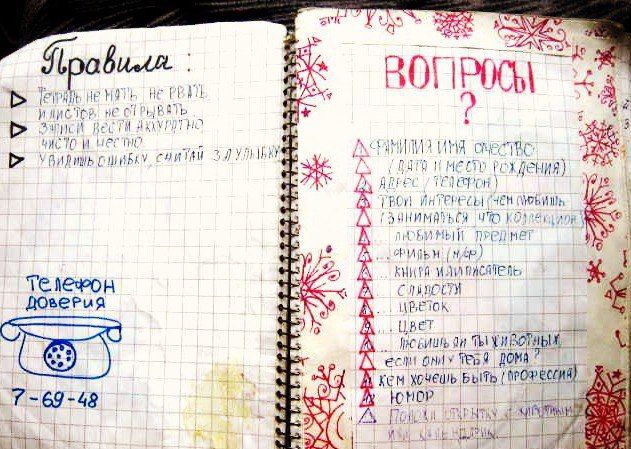 Правила:
Тетрадь не мять, не рвать
и листов не отрывать
Записи вести аккуратно
чисто и честно
Увидишь ошибку, считай за улыбку
Телефон
доверия
7-69-48
Вопросы
?
Фамилия имя очество
(дата и место рождения)
Адрес (телефон)
Твои интересы (чем любишь
заниматься что коллекцион
... любимый предмет
... фильм (м/ф)
... книга или писатель
сладости
... цветок
... цвет
... любишь ли ты животных,
если они у тебя дома?
Кем хочешь быть (профессия)
Юмор
открытку с
или календарик